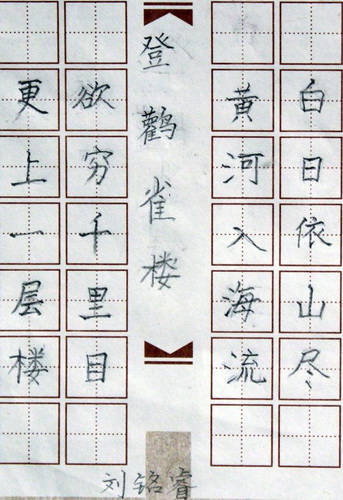 白日依山尽
黄河入海流
登鹳雀楼
欲穷千里目
更上一层楼
刘铭睿